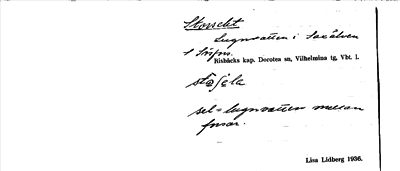 Storselet
Lugnvatten i Saxälven
Risbäcks kap. Dorotea sn, Vilhelmina tg, Vbt. l.
sel = lugnvatten mellan
forsar.
Lisa Lidberg 1936.